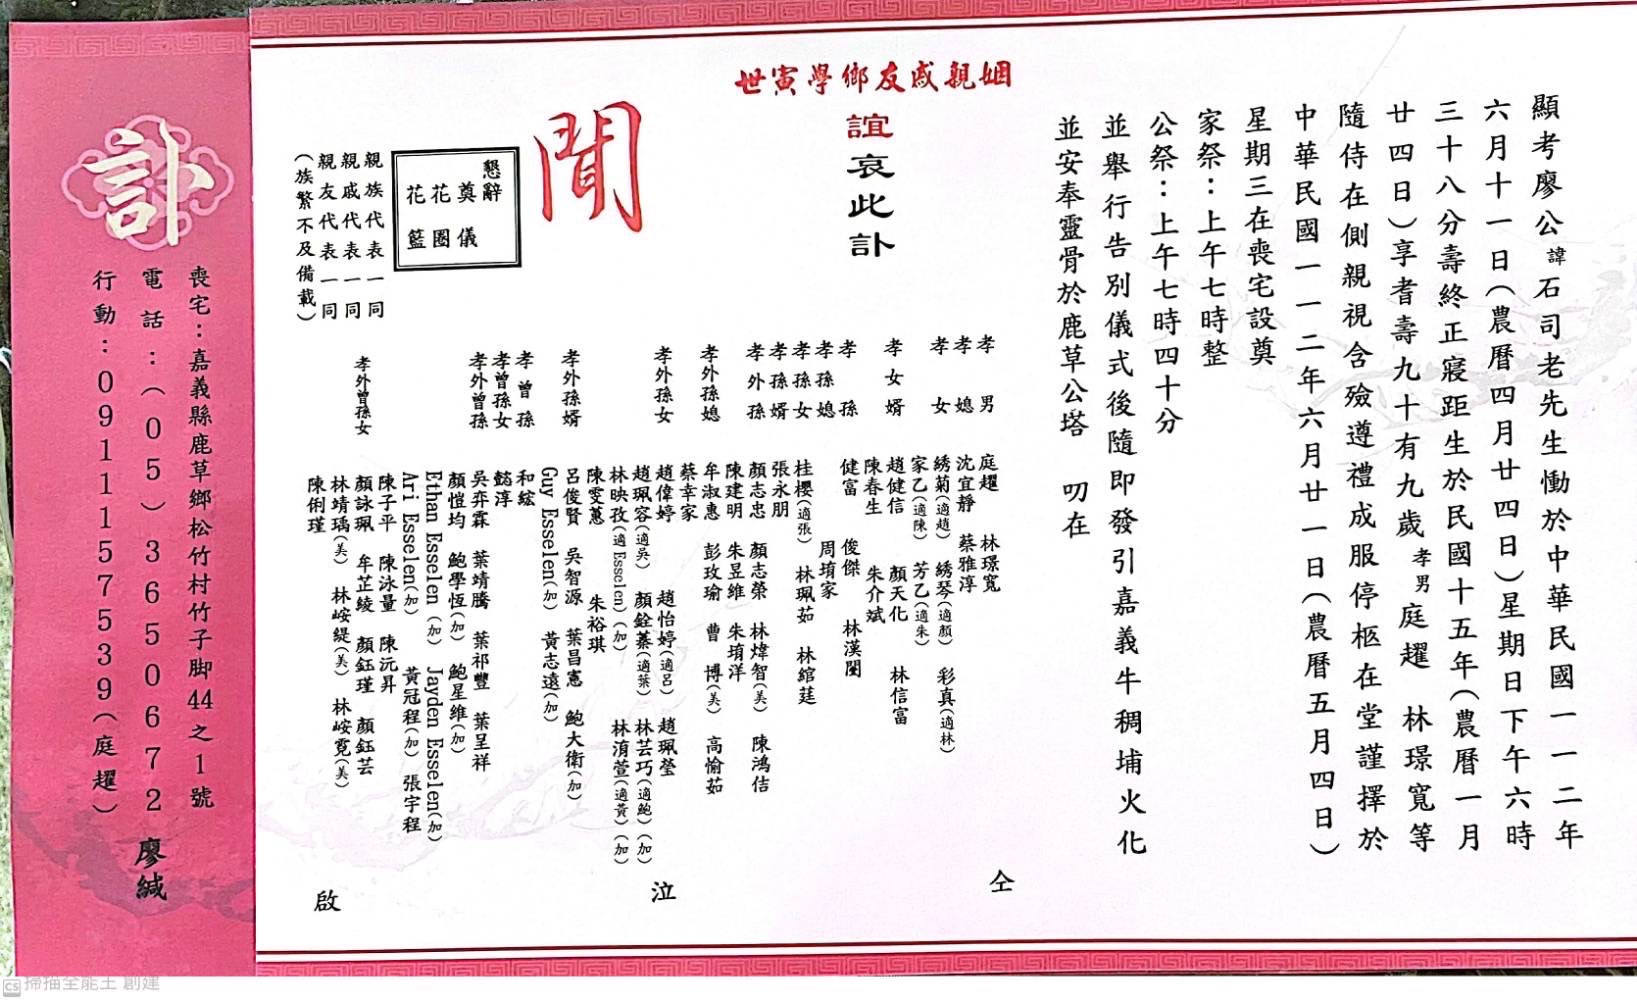 顯考廖公諱石司老先生慟於中華民國一一二年
六月十一日(農曆四月廿四日)星期日下午六時
三十八分壽終正寢距生於民國十五年(農曆一月
廿四日)享耆壽九十有九歲孝男庭趯 林璟寬等
隨侍在側親視含殮遵禮成服停柩在堂謹擇於
中華民國一一二年六月廿一日(農曆五月四日)
星期三在喪宅設奠
家祭：上午七時整
公祭：上午七時四十分
並舉行告別儀式後隨即發引嘉義牛稠埔火化
並安奉靈骨於鹿草公塔 叨在
世寅學鄉友戚親姻
誼哀此訃
聞
孝男 庭趯 林璟寬
孝媳 沈宜靜 蔡雅淳
孝女 綉菊(適趙) 綉琴(適顏) 彩真(適林)
家乙(適陳) 芳乙(適朱)
孝女婿 趙健信 顏天化 林信富
陳春生 朱介斌
孝孫 健富 俊傑 林漢閔
孝孫媳 周堉家
孝孫女 桂櫻(適張) 林珮茹 林綰莛
孝孫婿 張永朋
孝外孫 顏志忠 顏志榮 林煒智(美) 陳鴻佶
陳建明 朱昱維 朱堉洋
孝外孫媳 牟淑惠 彭玫瑜 曹博(美) 高愉茹
蔡幸家
孝外孫女 趙偉婷 趙怡婷(適呂) 趙珮瑩
趙珮容(適吳) 顏銓蓁(適葉) 林芸巧(適鮑)(加)
林映孜(適Esselen)(加) 林淯萱(適黃)(加)
陳雯蕙 朱裕琪
孝外孫婿 呂俊賢 吳智源 葉昌憲 鮑大衛(加)
Guy Esselen(加) 黃志遠(加)
孝曾孫 和鋐
孝曾孫女 懿淳
孝外曾孫 吳弈霖 葉靖騰 葉祁豐 葉呈祥
顏愷均 鮑學恆(加) 鮑星維(加)
Ethan Esselen(加) Jayden Esselen(加)
Ari Esselen(加) 黃冠程(加) 張宇程
陳子平 陳泳量 陳沅昇
孝外曾孫女 顏詠珮 牟芷綾 顏鈺瑾 顏鈺芸
林靖瑀(美) 林峖緹(美) 林峖霓(美)
陳俐瑾
仝
泣
啟
懇辭
奠儀
花圈
花籃
親族代表一同
親戚代表一同
親友代表一同
(族繁不及備載)
訃
喪宅：嘉義縣鹿草鄉松竹村竹子脚44之1號
電話：(05)3650672 廖緘
行動：0911157539(庭趯)
CS 掃描全能王 創建